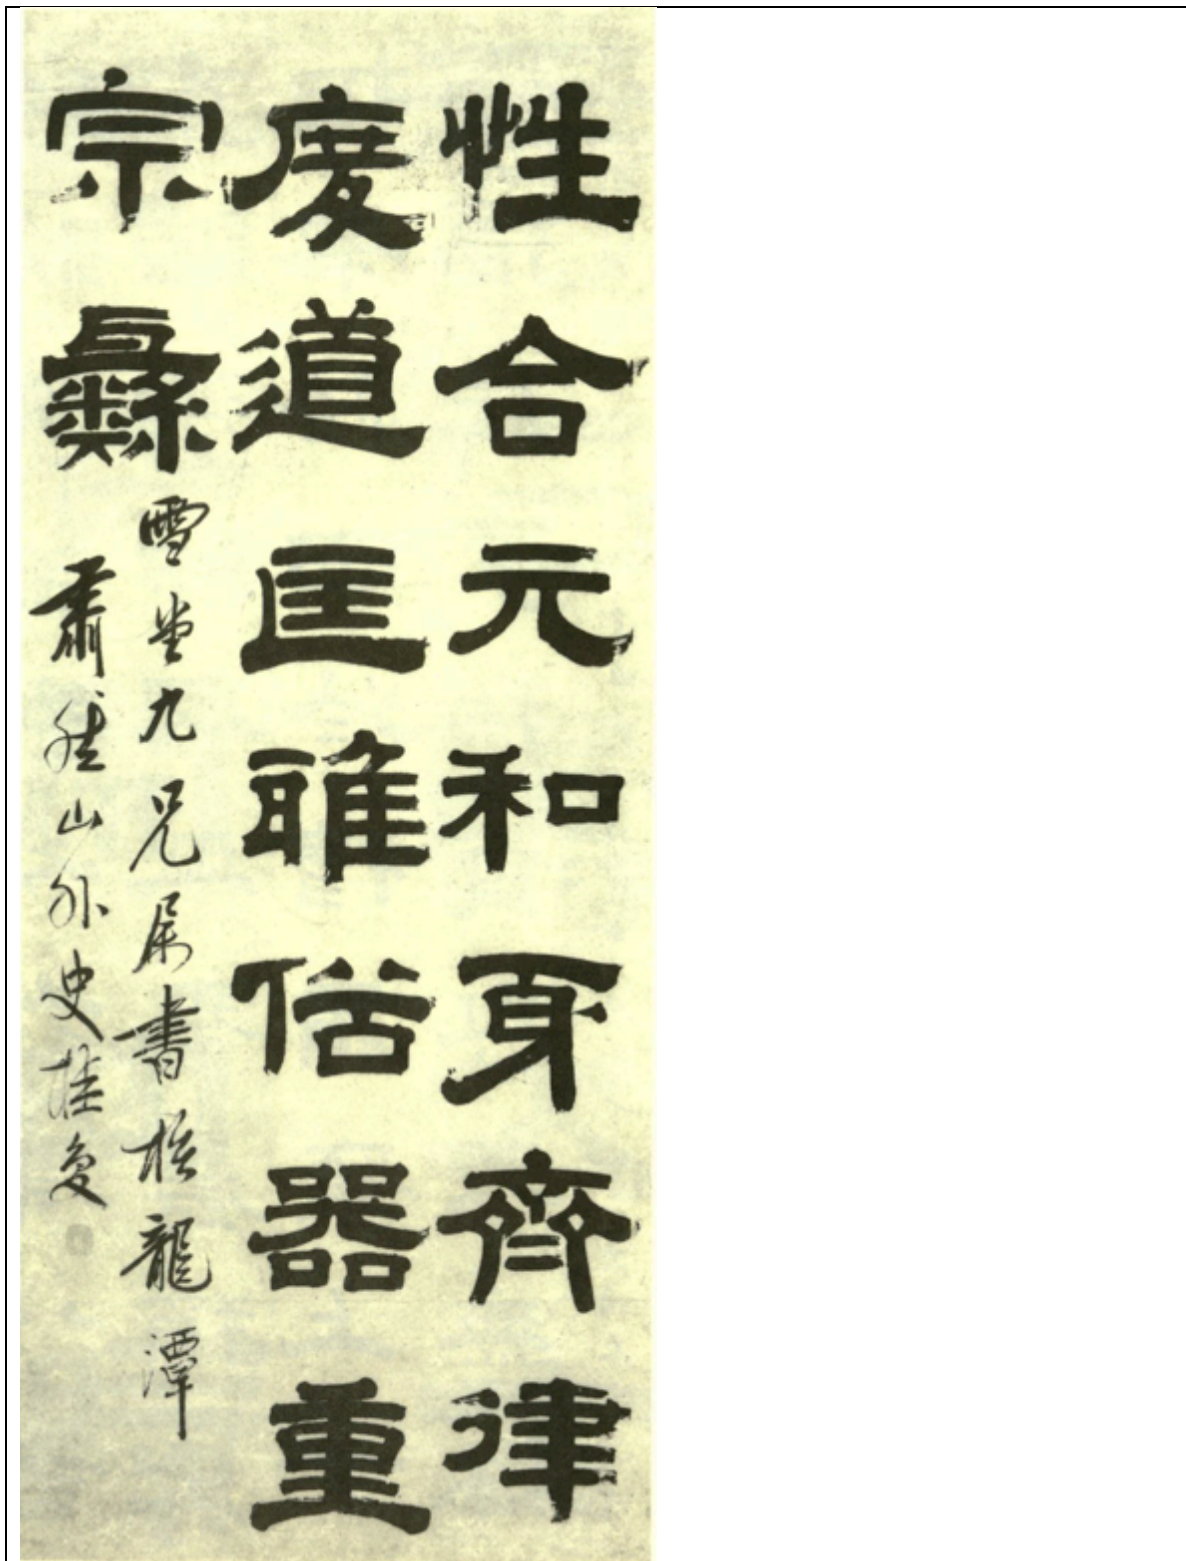 性合元和身齊律
度道匡雅俗器重
宗彝
雪堂九兄屬書於龍潭
肅然山外史桂复